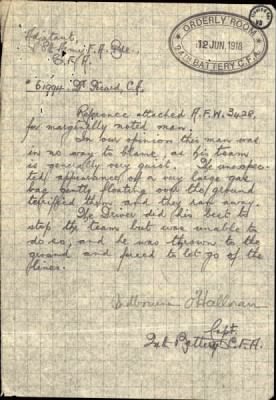 ORDERLY ROOM
12 JUN. 1918
24TH BATTERY C.F.A.
Adjutant,
C.F.A.
Dr. Picard, C.
Reference attached A.F.W. 3428,
for marginally noted man.
In our opinion this man was
in no way to blame, as his team
is generally very quiet. The unexpec-
ted appearance of a very large gas
bag gently floating over the ground
terrified them and they ran away.
The Driver did his best to
stop the team but was unable to
do so, and he was thrown to the
ground and forced to let go of the
lines.
O'Halloran
Capt.
24th Battery C.F.A.